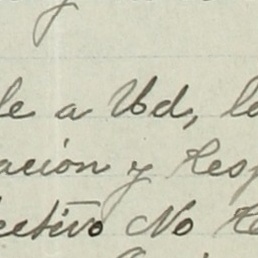 y
le a Ud, l
ación y Resp
ectivo No Re